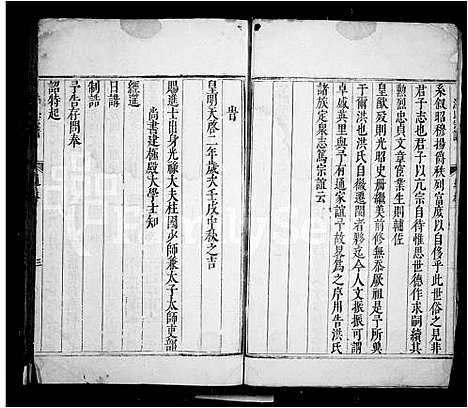 系叙昭穆揚裔秩列富貴以自侈乎此世俗之見非
君子志也君子以亢宗自待惟思世德作求嗣續其
勲烈忠貞文章宦業生則輔佐
皇猷歿則光昭史冊繼美前修無忝厥祖是予所與
于爾洪也洪氏自徽遷閩者夥迄今人文振振可謂
卓盛矣里與予有通家誼予故畧為之序用告洪氏
諸族定泉志篤宗誼云
旹
皇明天啓二年歲次壬戌中秋之吉
賜進士出身光祿大夫柱國少師兼太子太師吏部
尚書建極殿大學士知
經筵
日講
制誥
予告存問奉
詔特起